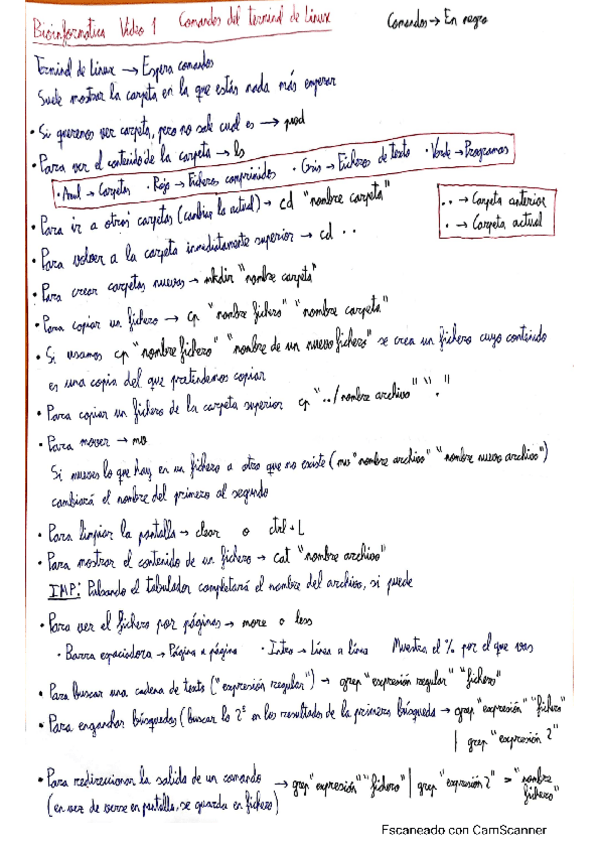 Bioinformatica Video 1 Comandos del terminal de Linux
Comandos → En negro
Terminal de Linux → Espera comandos
Suele mostrar la carpeta en la que estás nada más empezar
• Si queremos ver carpeta, pero no sale cual es → pwd
• Para ver el contenido de la carpeta → ls
• Azul → Carpetas • Rojo → Ficheros comprimidos • Gris → Ficheros de texto • Verde → Programas
• Para ir a otras carpetas (cambiar la actual) → cd "nombre carpeta"
.. → Carpeta anterior
. → Carpeta actual
• Para volver a la carpeta inmediatamente superior → cd ..
• Para crear carpetas nuevas → mkdir "nombre carpeta"
• Para copiar un fichero → cp "nombre fichero" "nombre carpeta"
• Si usamos cp "nombre fichero" "nombre de un nuevo fichero" se crea un fichero cuyo contenido
es una copia del que pretendemos copiar
• Para copiar un fichero de la carpeta superior cp "../nombre archivo" "."
• Para mover → mv
Si mueves lo que hay en un fichero a otro que no existe (mv "nombre archivo" "nombre nuevo archivo")
cambiará el nombre del primero al segundo
• Para limpiar la pantalla → clear o ctrl + L
• Para mostrar el contenido de un fichero → cat "nombre archivo"
IMP: Pulsando el tabulador completará el nombre del archivo, si puede
• Para ver el fichero por páginas → more o less
• Barra espaciadora → Página a página • Intro → Línea a línea Muestra el % por el que vas
• Para buscar una cadena de texto ("expresión regular") → grep "expresión regular" "fichero"
• Para enganchar búsquedas (buscar lo 2º en los resultados de la primera búsqueda → grep "expresión" "fichero"
| grep "expresión 2"
• Para redireccionar la salida de un comando → grep "expresión" "fichero" | grep "expresión 2" > "nombre fichero"
(en vez de verse en pantalla, se guarda en fichero)
Escaneado con CamScanner